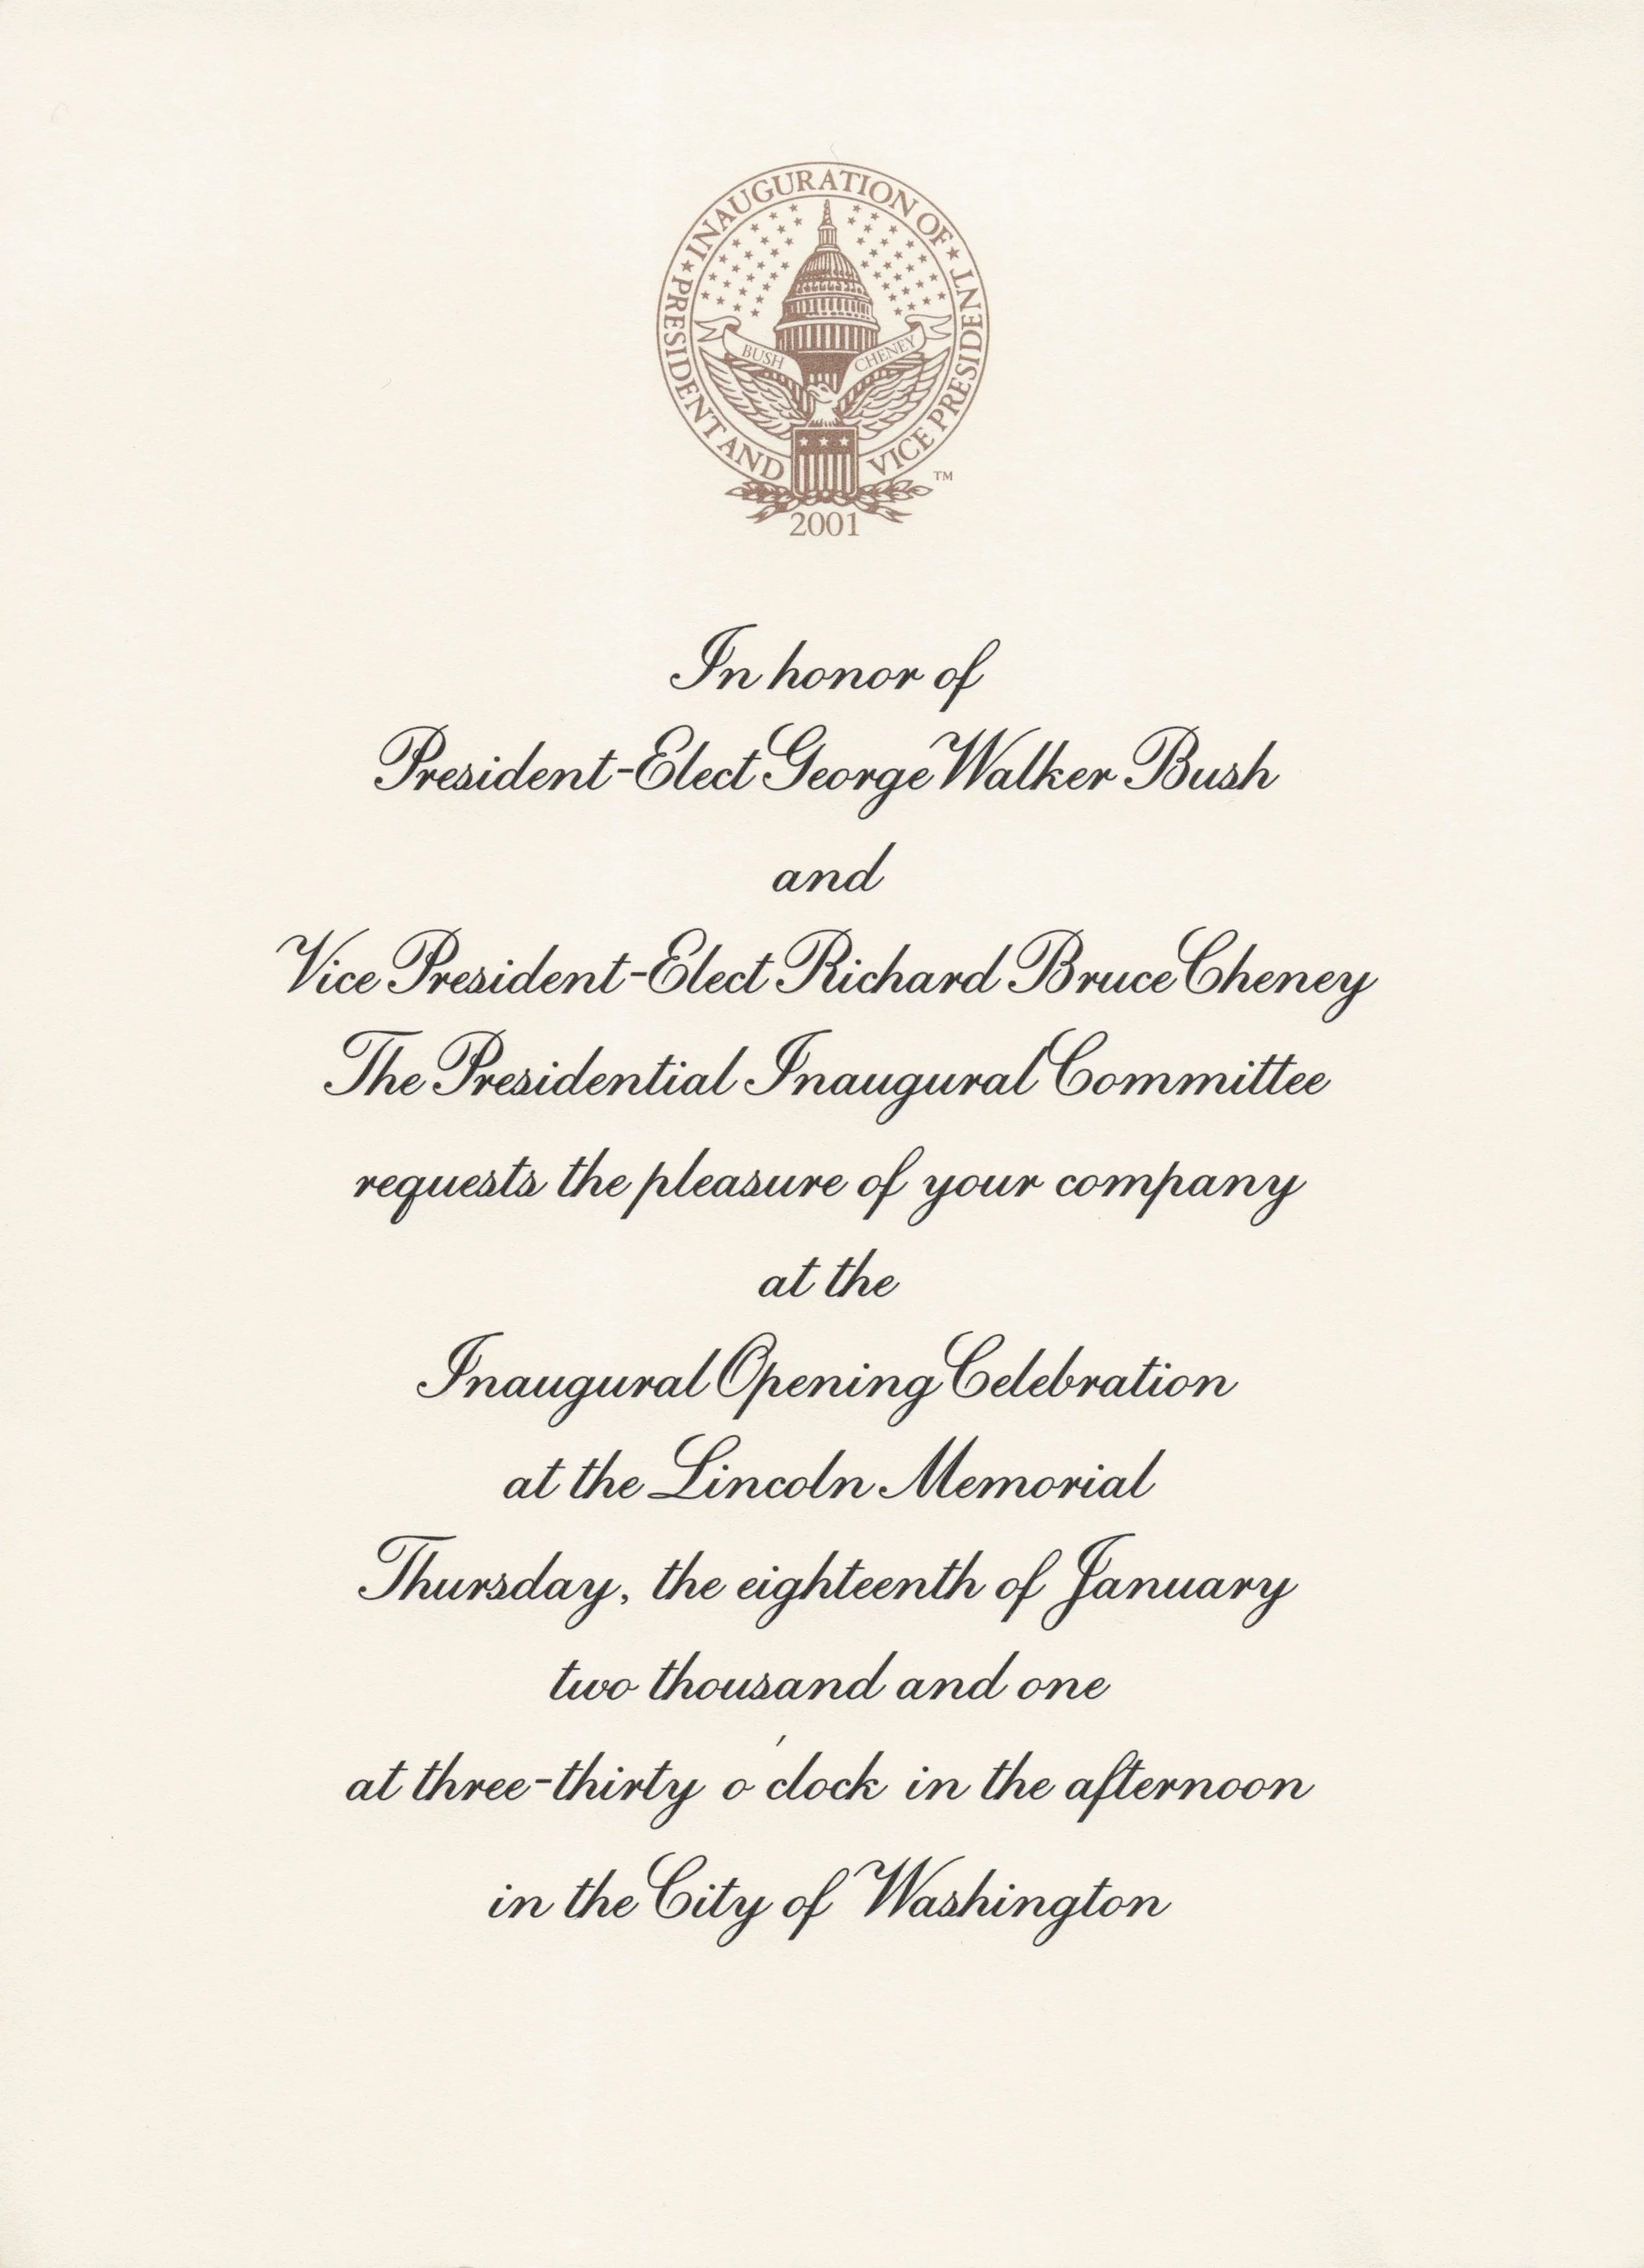 INAUGURATION OF
PRESIDENT AND VICE PRESIDENT
BUSH CHENEY
TM
2001
In honor of
President-Elect George Walker Bush
and
Vice President-Elect Richard Bruce Cheney
The Presidential Inaugural Committee
requests the pleasure of your company
at the
Inaugural Opening Celebration
at the Lincoln Memorial
Thursday, the eighteenth of January
two thousand and one
at three-thirty o'clock in the afternoon
in the City of Washington